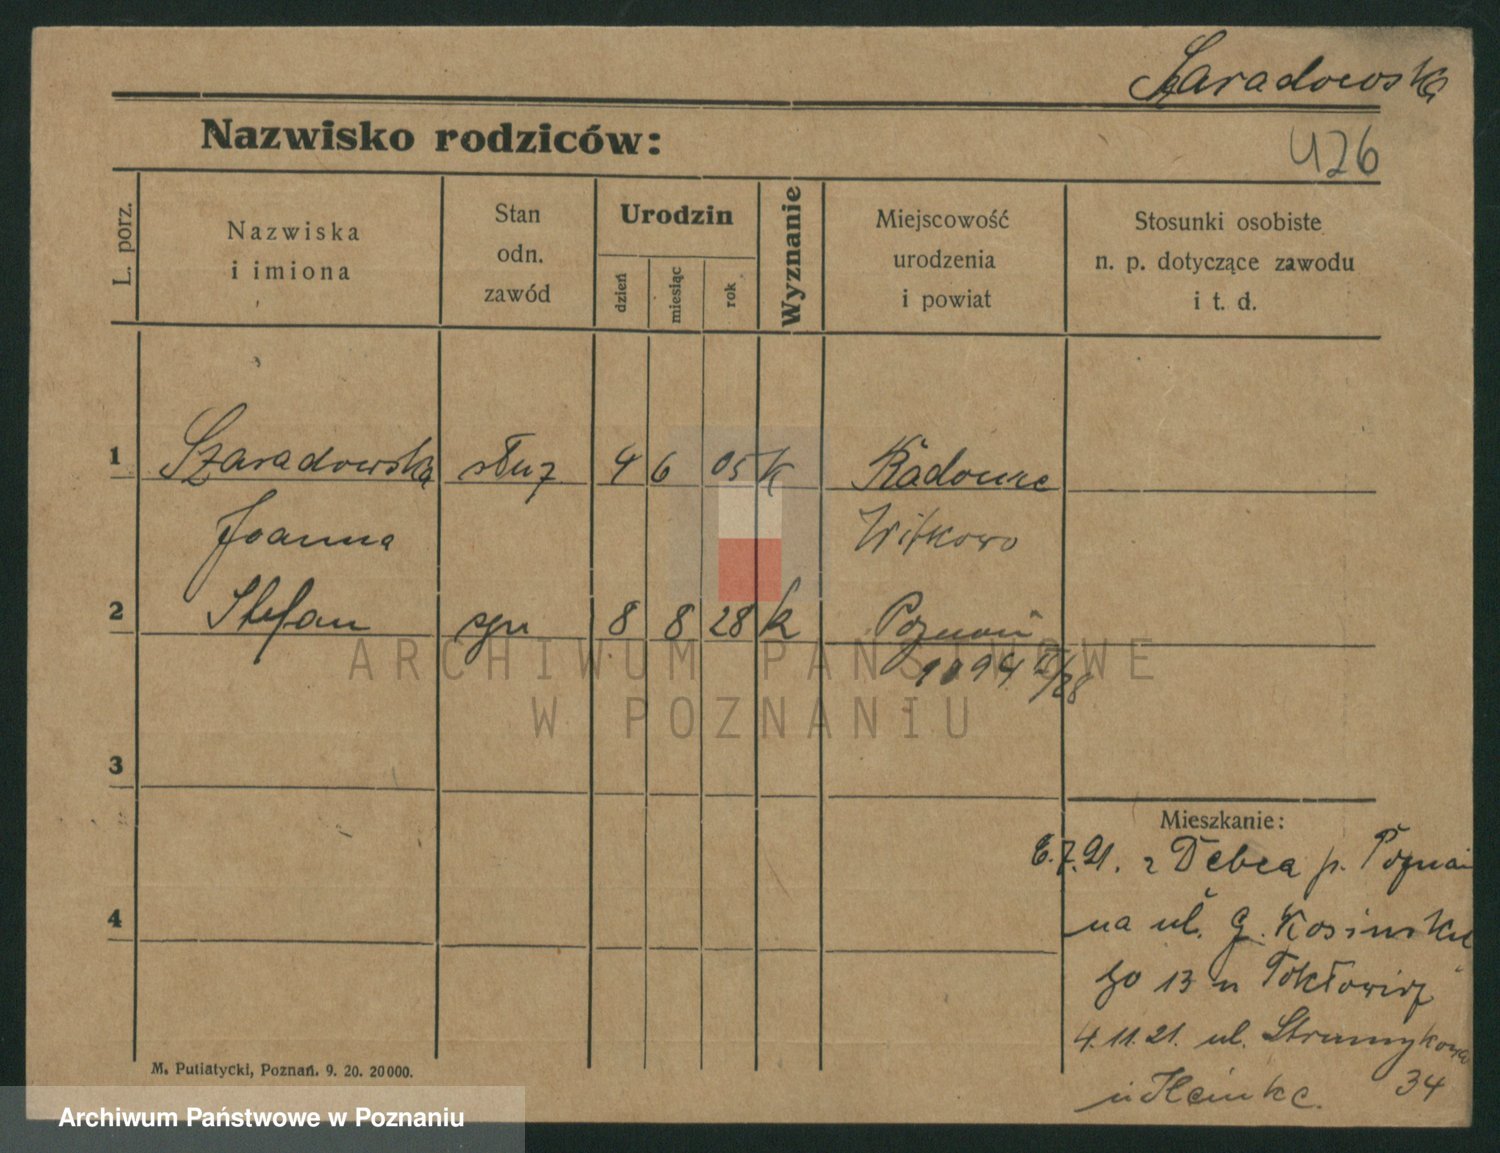 Szaradowska
426
Nazwisko rodziców:
L. porz.
Nazwiska
i imiona
Stan
odn.
zawód
Urodzin
dzień
miesiąc
rok
Wyznanie
Miejscowość
urodzenia
i powiat
Stosunki osobiste
n. p. dotyczące zawodu
i t. d.
1 Szaradowska służ 4 6 05 k
Joanna Witkowo
2 Stefan syn 8 8 28 k Poznań
1094 /28
ARCHIWUM PAŃSTWOWE
W POZNANIU
3
Mieszkanie:
7.21. z Dębca p. Poznań
4
na ul. G. Kosińskie
go 13 u
4.11.21. ul. Strumykowa
34
M. Putiatycki, Poznań. 9. 20. 20000.
Archiwum Państwowe w Poznaniu